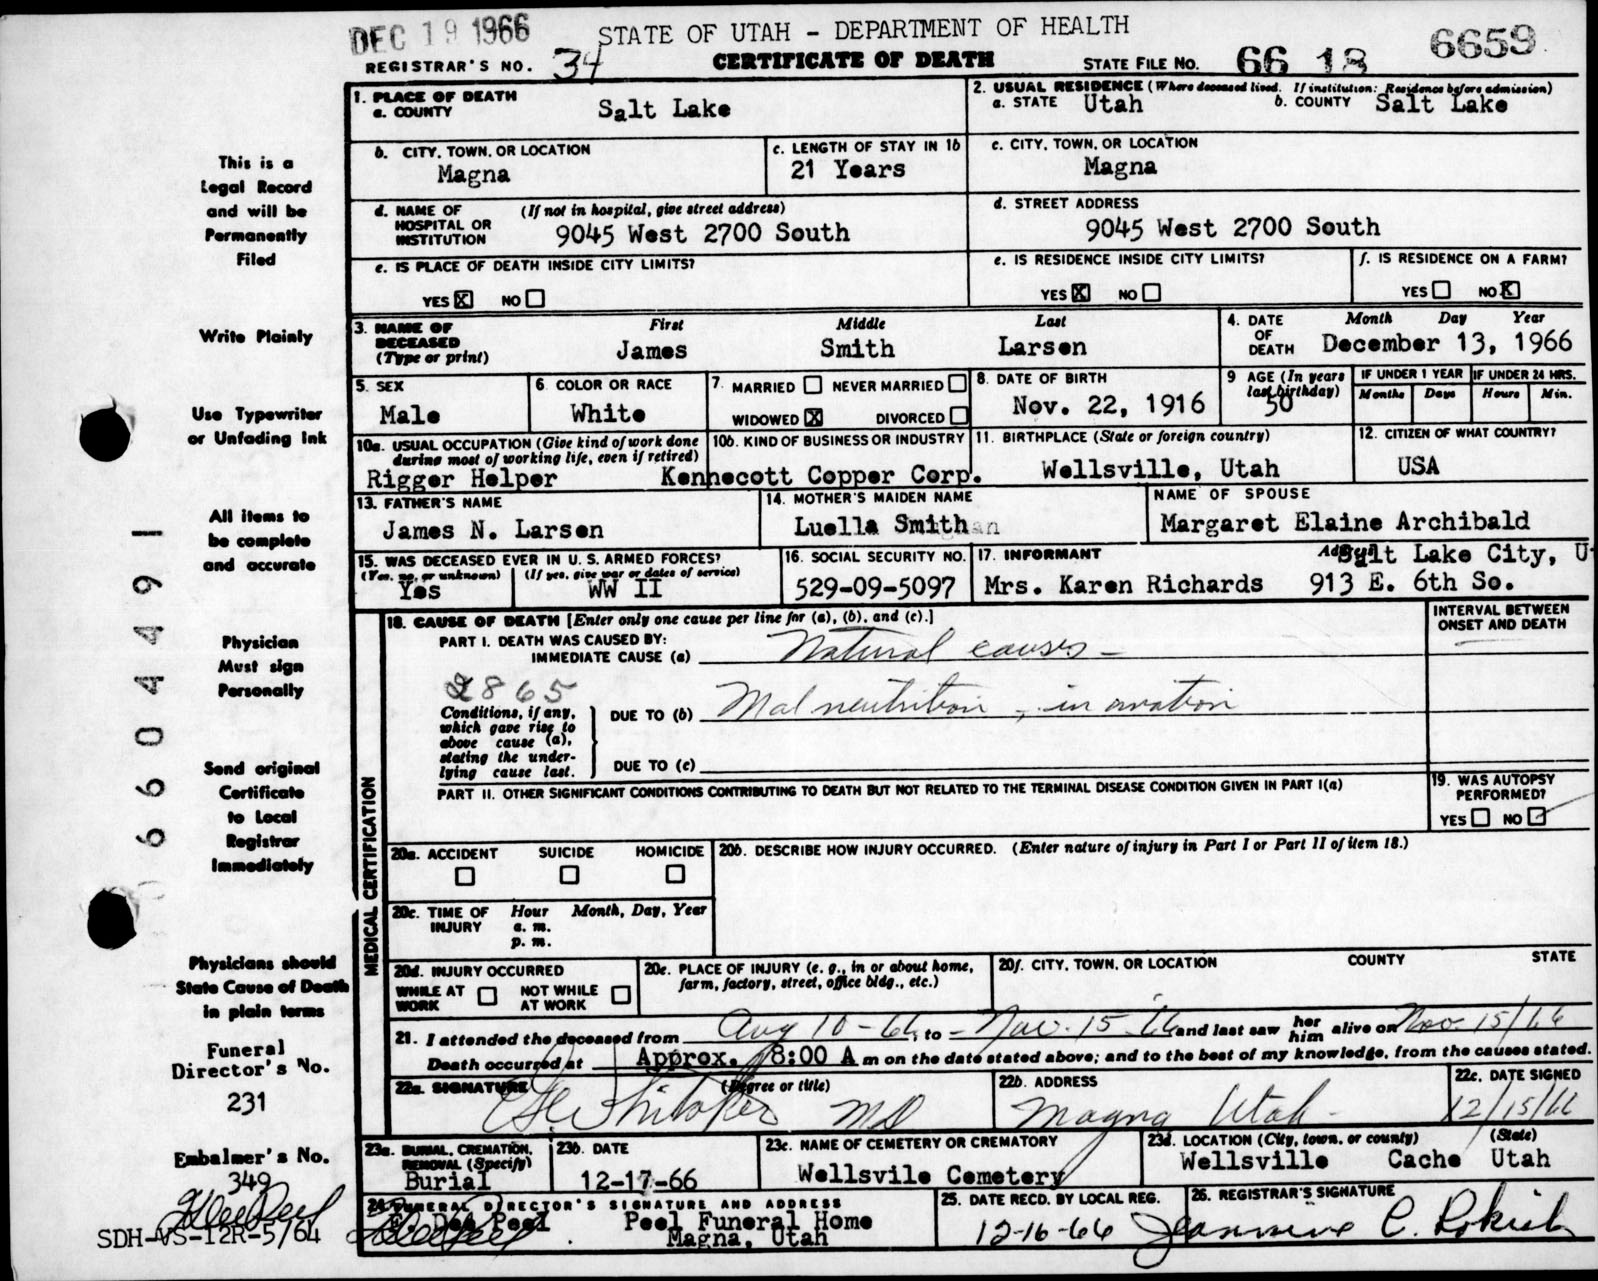 DEC 19 1966
STATE OF UTAH - DEPARTMENT OF HEALTH
6659
REGISTRAR'S NO. 34
CERTIFICATE OF DEATH
STATE FILE NO. 66 18
1. PLACE OF DEATH
a. COUNTY Salt Lake
2. USUAL RESIDENCE (Where deceased lived. If institution: Residence before admission)
a. STATE Utah b. COUNTY Salt Lake
b. CITY, TOWN, OR LOCATION
Magna
c. LENGTH OF STAY IN 1b
21 Years
c. CITY, TOWN, OR LOCATION
Magna
d. NAME OF HOSPITAL OR INSTITUTION (If not in hospital, give street address)
9045 West 2700 South
d. STREET ADDRESS
9045 West 2700 South
e. IS PLACE OF DEATH INSIDE CITY LIMITS?
YES X NO
e. IS RESIDENCE INSIDE CITY LIMITS?
YES X NO
f. IS RESIDENCE ON A FARM?
YES NO X
3. NAME OF DECEASED (Type or print)
First Middle Last
James Smith Larsen
4. DATE OF DEATH
Month Day Year
December 13, 1966
5. SEX
Male
6. COLOR OR RACE
White
7. MARRIED NEVER MARRIED
WIDOWED X DIVORCED
8. DATE OF BIRTH
Nov. 22, 1916
9 AGE (In years last birthday)
50
IF UNDER 1 YEAR
Months Days
IF UNDER 24 HRS.
Hours Min.
10a. USUAL OCCUPATION (Give kind of work done during most of working life, even if retired)
Rigger Helper
10b. KIND OF BUSINESS OR INDUSTRY
Kennecott Copper Corp.
11. BIRTHPLACE (State or foreign country)
Wellsville, Utah
12. CITIZEN OF WHAT COUNTRY?
USA
13. FATHER'S NAME
James N. Larsen
14. MOTHER'S MAIDEN NAME
Luella Smith
NAME OF SPOUSE
Margaret Elaine Archibald
15. WAS DECEASED EVER IN U. S. ARMED FORCES?
(Yes, no, or unknown) (If yes, give war or dates of service)
Yes WW II
16. SOCIAL SECURITY NO.
529-09-5097
17. INFORMANT
Mrs. Karen Richards
Salt Lake City, U
913 E. 6th So.
18. CAUSE OF DEATH [Enter only one cause per line for (a), (b), and (c).]
INTERVAL BETWEEN ONSET AND DEATH
PART I. DEATH WAS CAUSED BY:
IMMEDIATE CAUSE (a) Natural causes -
2865
Conditions, if any, which gave rise to above cause (a), stating the underlying cause last.
DUE TO (b) Mal neutrition
DUE TO (c)
PART II. OTHER SIGNIFICANT CONDITIONS CONTRIBUTING TO DEATH BUT NOT RELATED TO THE TERMINAL DISEASE CONDITION GIVEN IN PART I(a)
19. WAS AUTOPSY PERFORMED?
YES NO
20a. ACCIDENT SUICIDE HOMICIDE
20b. DESCRIBE HOW INJURY OCCURRED. (Enter nature of injury in Part I or Part II of item 18.)
20c. TIME OF INJURY
Hour Month, Day, Year
a. m.
p. m.
20d. INJURY OCCURRED
WHILE AT WORK NOT WHILE AT WORK
20e. PLACE OF INJURY (e. g., in or about home, farm, factory, street, office bldg., etc.)
20f. CITY, TOWN, OR LOCATION COUNTY STATE
21. I attended the deceased from Aug 10-66, to Nov. 15-66 and last saw her him alive on Nov. 15/66
Death occurred at Approx. 8:00 A m on the date stated above; and to the best of my knowledge, from the causes stated.
22a. SIGNATURE (Degree or title)
Whitaker MD
22b. ADDRESS
Magna Utah
22c. DATE SIGNED
12/15/66
23a. BURIAL, CREMATION, REMOVAL (Specify)
Burial
23b. DATE
12-17-66
23c. NAME OF CEMETERY OR CREMATORY
Wellsvile Cemetery
23d. LOCATION (City, town, or county) (State)
Wellsville Cache Utah
24. FUNERAL DIRECTOR'S SIGNATURE AND ADDRESS
Dee Peel Peel Funeral Home
Magna, Utah
25. DATE RECD. BY LOCAL REG.
12-16-66
26. REGISTRAR'S SIGNATURE
MEDICAL CERTIFICATION
This is a
Legal Record
and will be
Permanently
Filed
Write Plainly
Use Typewriter
or Unfading Ink
All items to
be complete
and accurate
Physician
Must sign
Personally
Send original
Certificate
to Local
Registrar
Immediately
Physicians should
State Cause of Death
in plain terms
Funeral
Director's No.
231
Embalmer's No.
349
SDH-VS-12R-5/64
6604491